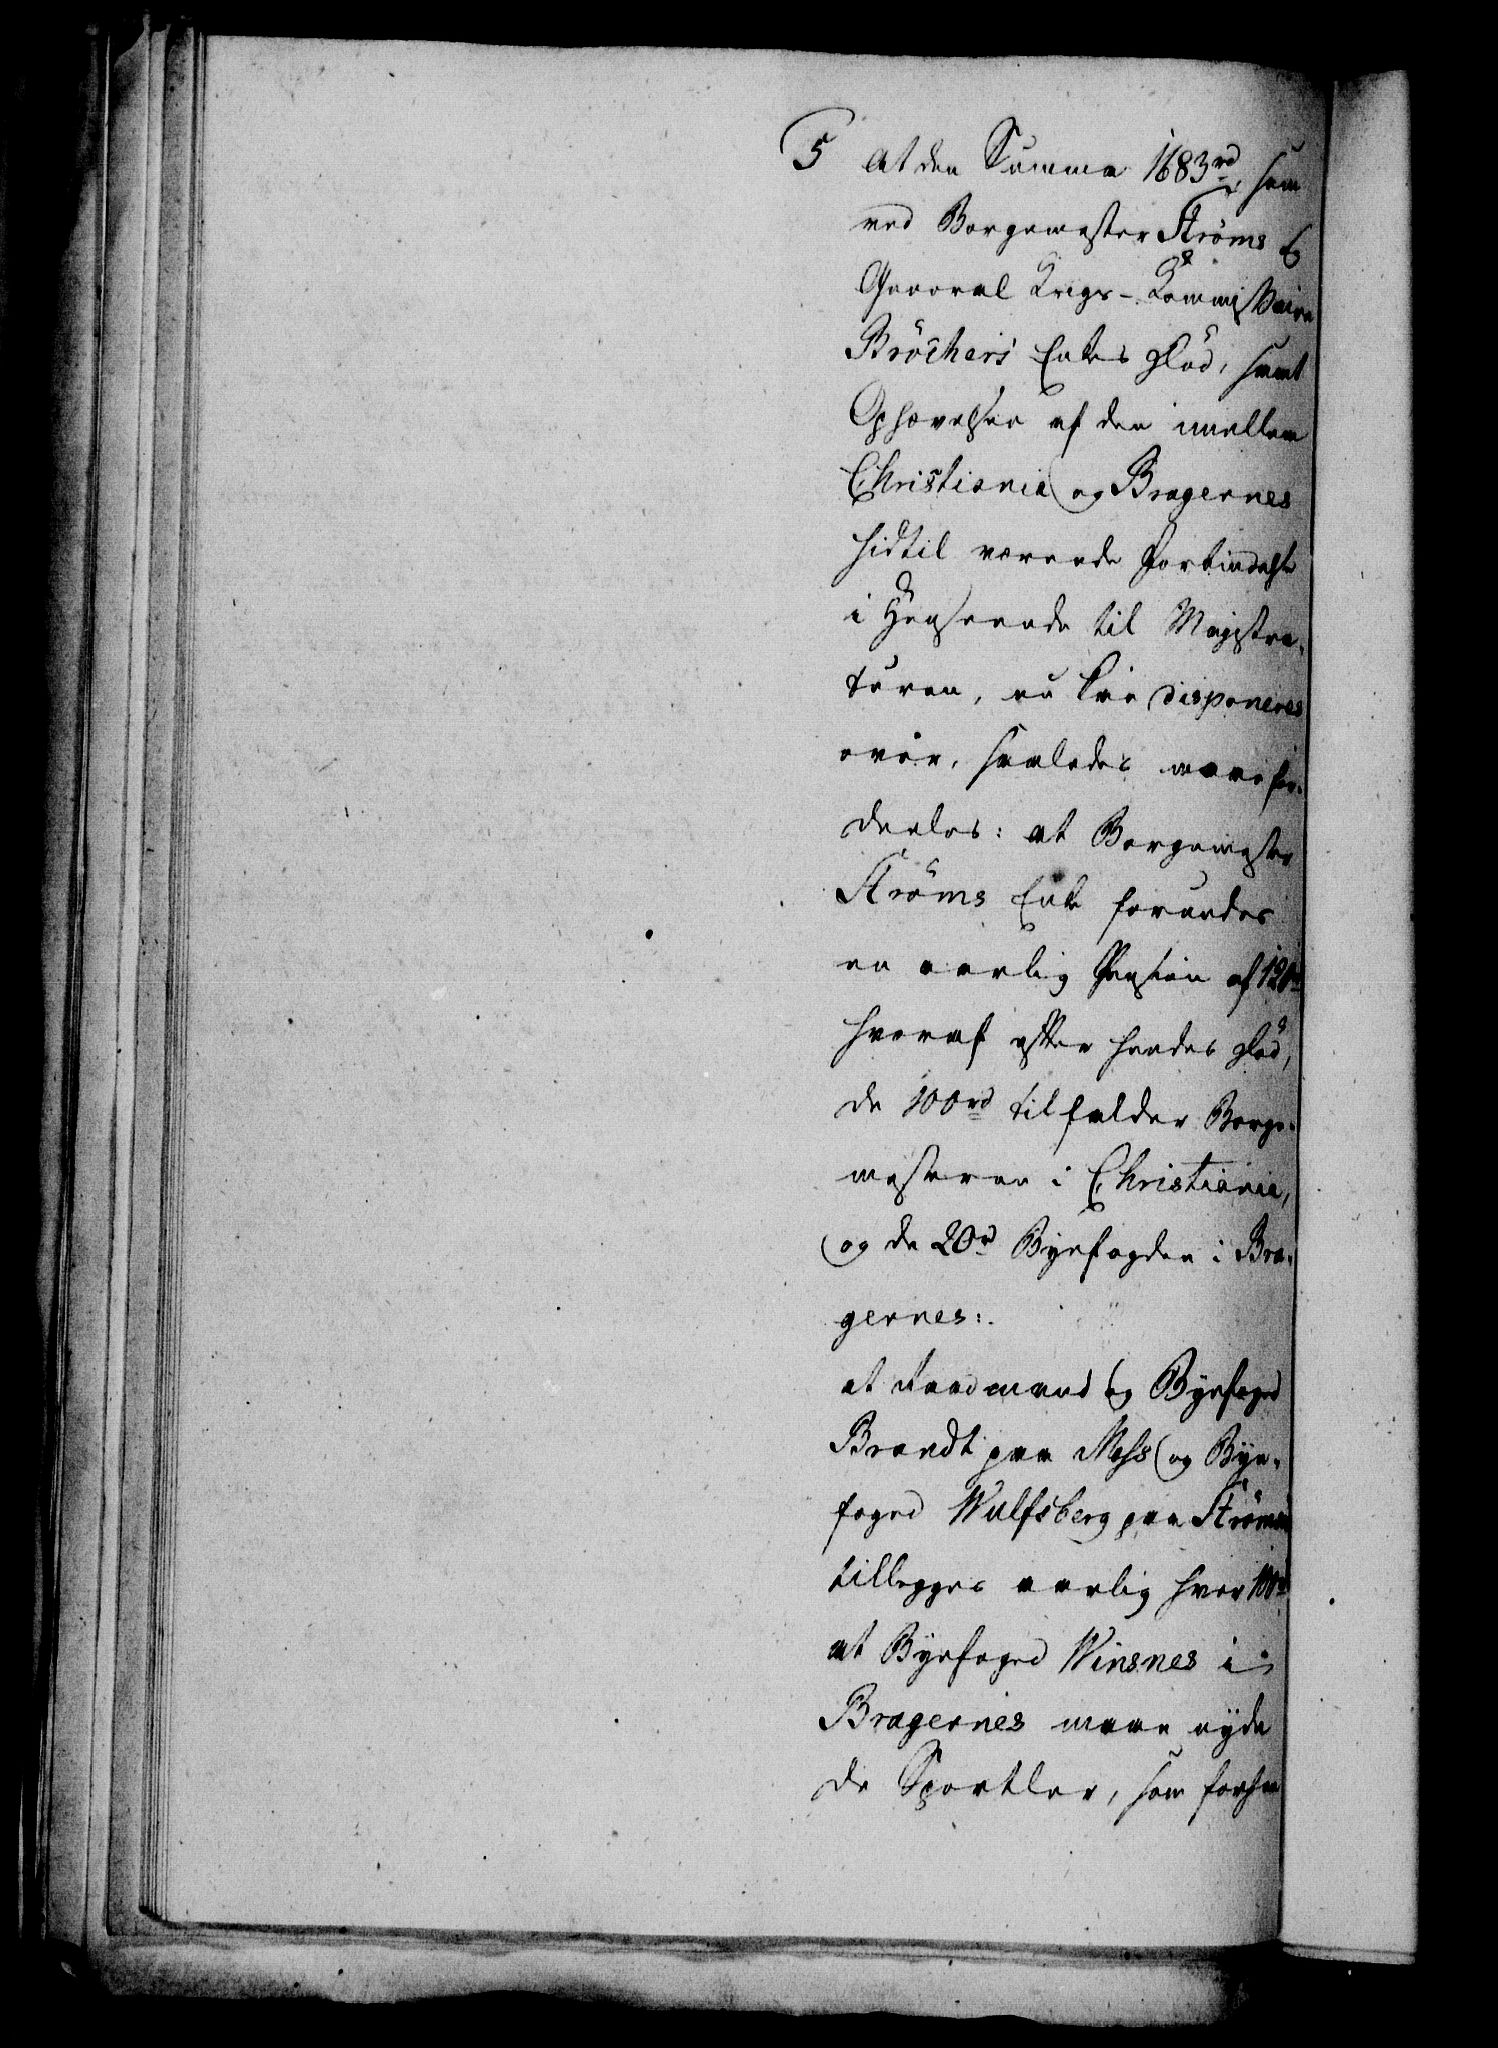 5 at den Summa 1683rd, som
ved Borgemester Strøms og
General Krigs-Kommissaire
Bröchers Enkes Død, samt
Ophævelsen af den imellem
Christiania og Bragernes
hidtil værende Forbindelse
i Henseende til Magistra-
turen, nu kan disponeres
over, saaledes maae for-
deeles: at Borgemester
Strøms Enke forundes
en aarlig Pension af 120rd
hvoraf efter hendes Død,
de 100rd tilfalder Borge-
mesteren i Christiania,
og de 20rd Byefogden i Bra-
gernes:
at Raadmand og Byefoged
Brandt paa Moss og Bye-
foged Wulfsberg paa Strømsøe
tillegges aarlig hver 100rd
at Byefoged Winsnes i
Bragernes maae nyde
de Sportler, som forhen